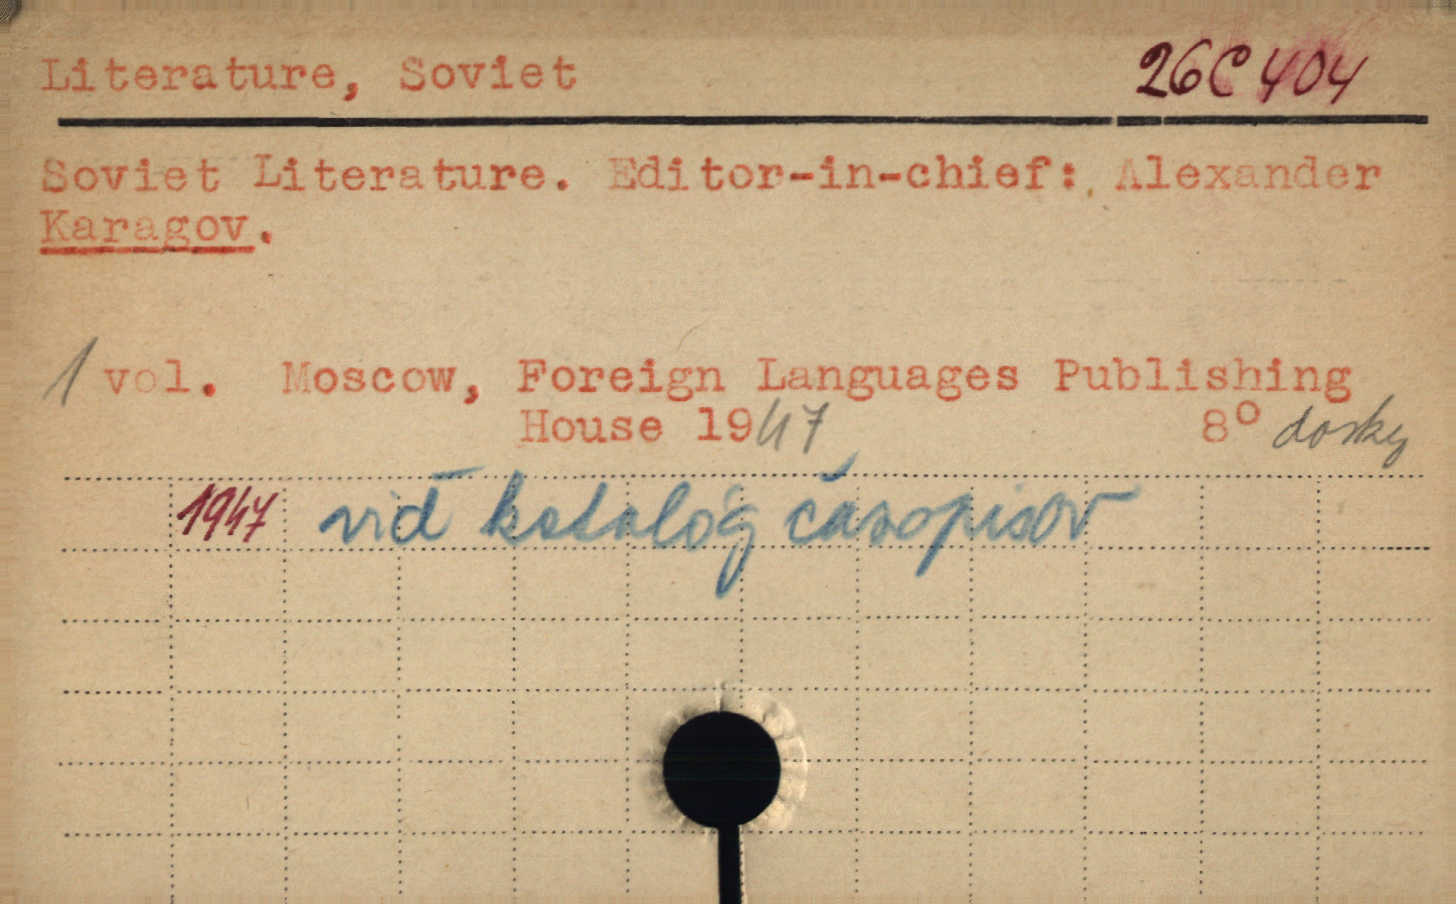 Literature, Soviet 26C404
Soviet Literature. Editor-in-chief: Alexander
Karagov.
1 vol. Moscow, Foreign Languages Publishing
House 1947 8° dosky
1947 viď katalóg časopisov